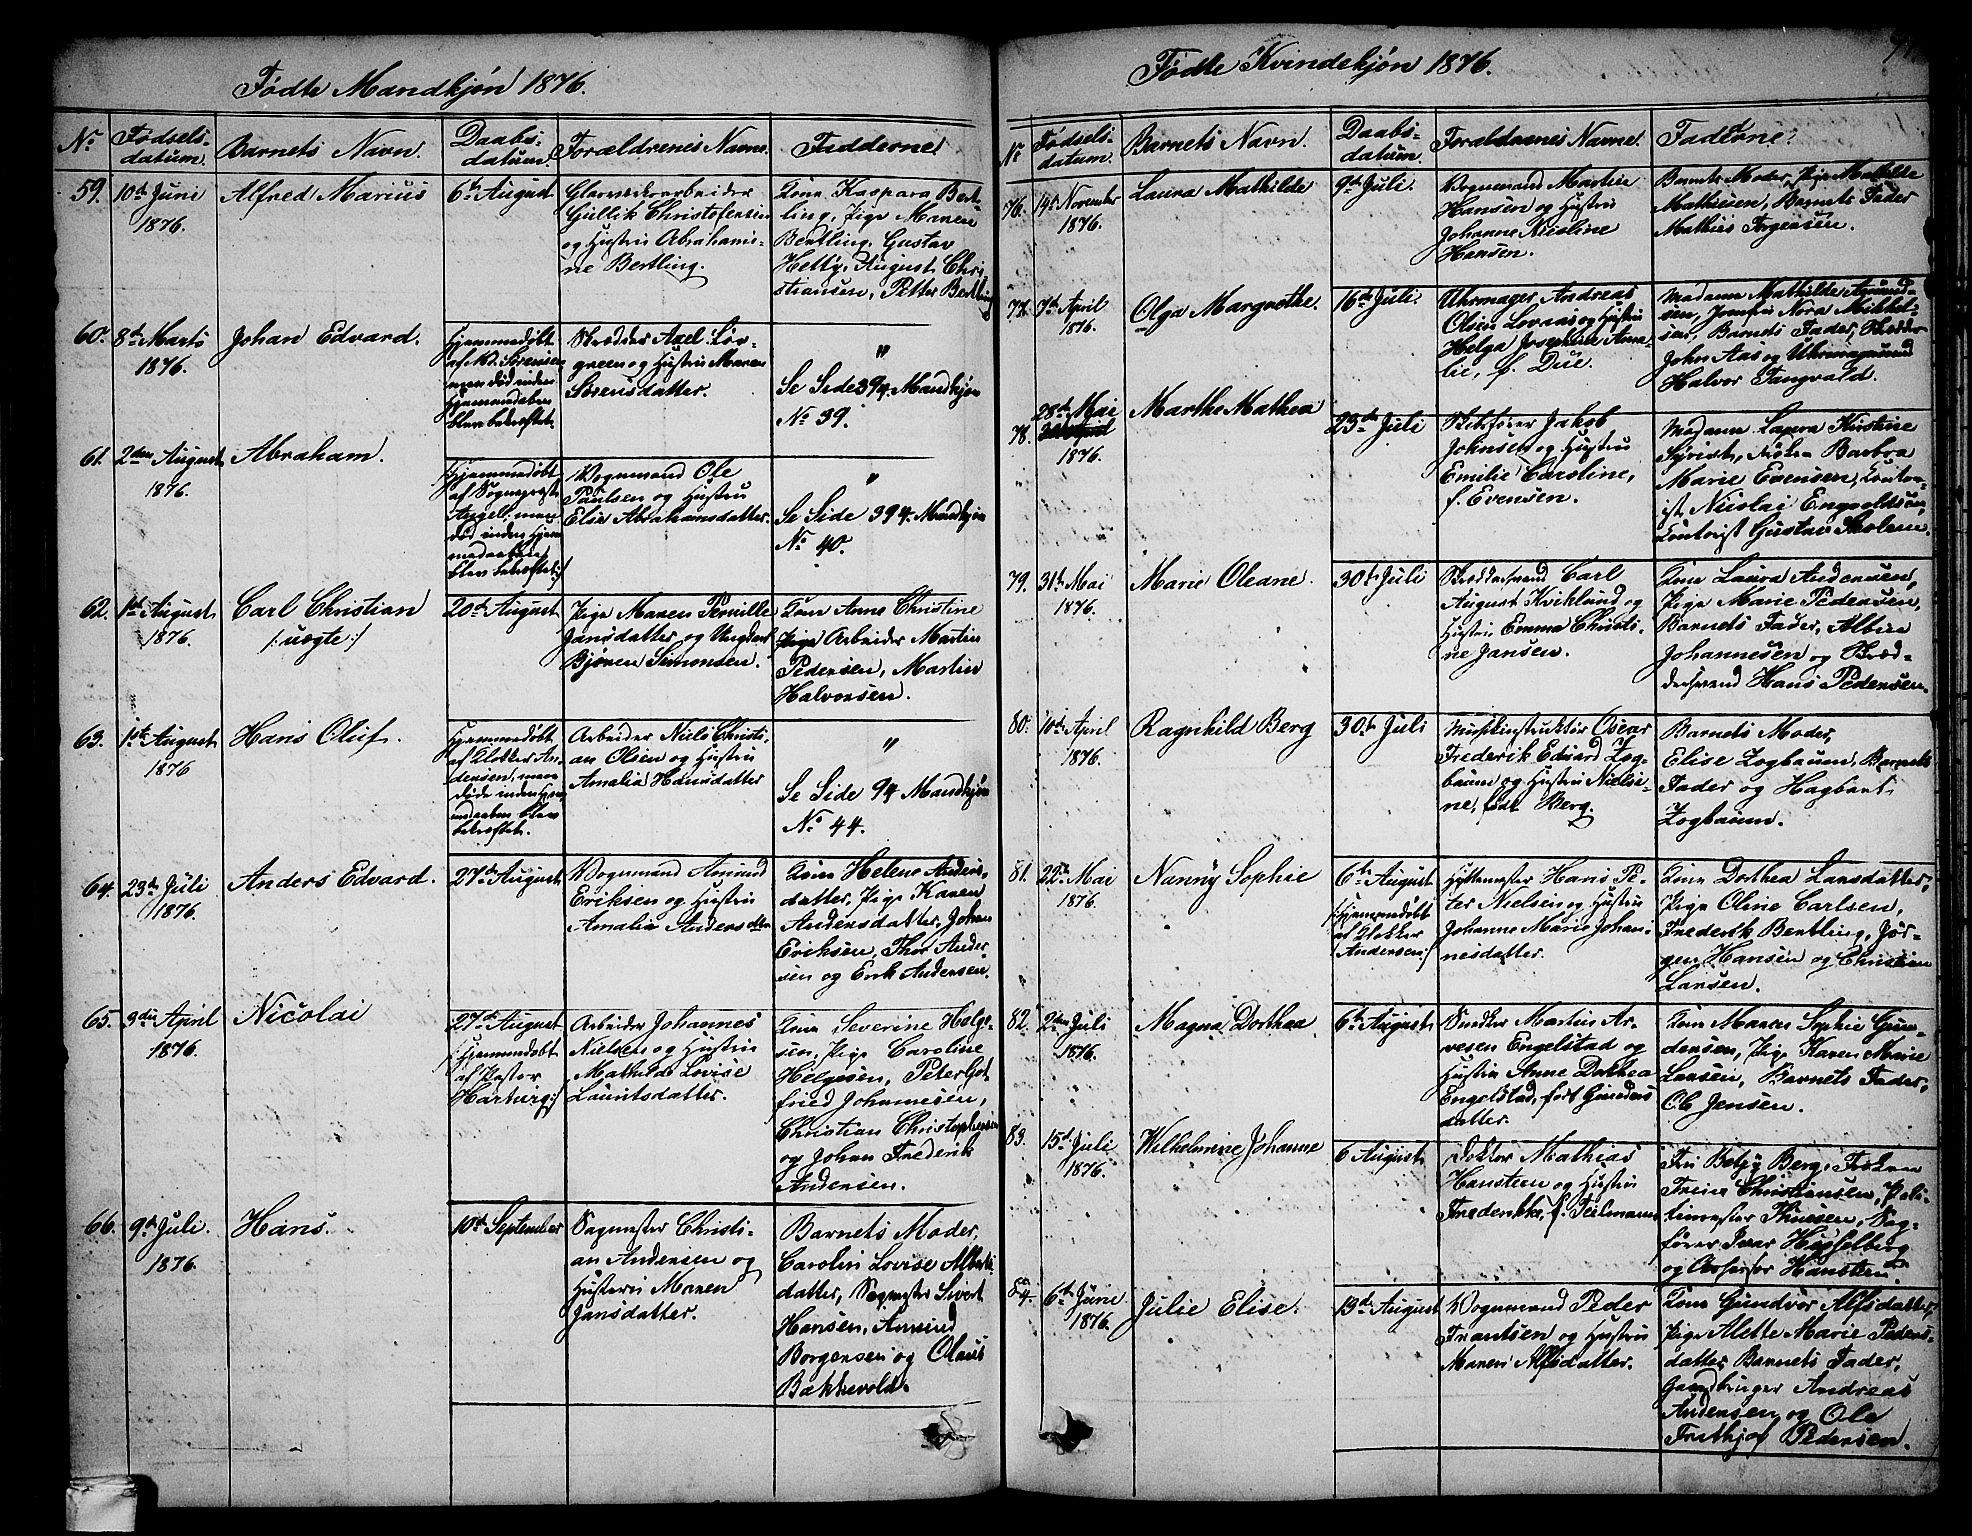 Fødte Mandkjøn 1876.
No
Fødsels-
datum.
Barnets Navn.
Daabs-
datum.
Forældrenes Navne.
Fadderne
59.
10de Juni
1876.
Alfred Marius
6te August
Gullik Christofersen
og Hustru Abrahami-
ne Bertling.
Kone Kaspara Bert-
ling, Pige Maren
Bertling, Gustav
Hetty, August Chri-
stiansen, Petter Bertling
60.
8de Marts
1876.
Johan Edvard.
Hjemmedøbt
af Sørensen
men død inden
Hjemmedaaben
blev bekræftet.
Skrædder Axel Løv-
green og Hustru Maren
Sørensdatter.
"
Se Side 394 Mandkjøn
No 39.
61.
2den August
1876.
Abraham.
Hjemmedøbt
af Sognepræst
Angell: men
død inden Hjem-
medaaben
blev bekræftet:/
Vognmand Ole
Paulsen og Hustru
Elise Abrahamsdatter.
"
Se Side 394 Mandkjøn
No 40.
62.
1ste August
1876.
Carl Christian
/:uægte:/
20de August
Pige Maren Pernille
Jansdatter, og Ungkarl
Bjørn Simonsen.
Kone Anne Christine
Arbeider Martin
Pedersen, Martin
Halvorsen.
63.
1ste August
1876
Hans Oluf.
Hjemmedøbt
af Klokker An-
dersen, men
døde inden Hjem-
medaaben blev
bekræftet.
Arbeider Niels Christi-
an Olsen og Hustru
Amalia Hansdatter
"
Se Side 94 Mandkjøn
No 44.
64.
23de Juli
1876.
Anders Edvard.
27de August
Vognmand Amund
Eriksen og Hustru
Amalia Andersdatter
Kone Helene Anders-
datter, Pige Karen
Andersdatter, Johan
Eriksen, Thor Ander-
sen og Erik Andersen.
65.
3die April
1876.
Nicolai
27de August
/:Hjemmedøbt
af Pastor
Hartvig:/
Arbeider Johannes
Nielsen og Hustru
Mathilde Lovise
Lauritsdatter.
Kone Severine Helge-
sen, Pige Caroline
Helgesen, Peter Got-
fried Johannesen,
Christian Christophersen
og Johan Frederik
Andersen.
66.
9de Juli.
1876.
Hans.
10de September
Sagmester Christi-
an Andersen og
Hustru Maren
Jansdatter.
Barnets Moder,
Carolin Lovise Alberts-
datter, Sagmester Sivert
Hansen, Amund
Borgersen og Olaus
Bakkevold.
Fødte Kvindekjøn 1876.
No
Fødsels-
datum.
Barnets Navn.
Daabs-
datum.
Forældrenes Navne.
Fadderne.
76.
14de November
1876.
Laura Mathilde
9de Juli.
Vognmand Martin
Hansen og Hustru
Johanne Nicoline
Hansen.
Barnets Moder, Pige Mathilde
Mathiesen, Barnets Fader
Mathis Jørgensen.
77.
7de April
1876.
Olga Margrethe.
16de Juli.
Uhrmager Andreas
Olsen og Hustru
Helga Josephine Ama-
lie, f. Due.
Madam Mathilde Amund-
sen, Jomfru Nora Mikkel-
sen, Barnets Fader, Skrædder
John Aas og Uhrmagersvend
Halvor Tangvald.
78.
28de Mai
1876.
Marthe Mathea
23de Juli
Jakob
Johnsen og Hustru
Emilie Caroline,
f. Evensen.
Madam Laura Kirstine
Syvertz, Frøken Barbra
Marie Evensen, Kontor-
ist Nicolai Engvoldsen,
Kontorist Gustav Skolem.
79.
31te Mai
1876.
Marie Oleane.
30te Juli
Skræddersvend Carl
August Kviklund og
Hustru Emma Christi-
ne Jansen.
Kone Laura Andersen,
Pige Marie Pedersen,
Barnets Fader, Albin
Johannesen og Skræd-
dersvend Hans Pedersen.
80.
10de April
1876.
Ragnhild Berg
30te Juli
Musikinstruktør Oscar
Frederik Edvard Zog-
baum og Hustru Nielsi-
ne, født Berg.
Barnets Moder,
Elise Zogbaum, Barnets
Fader og Hagbart
Zogbaum.
81.
22de Mai
1876.
Nanny Sophie
6te August
/:Hjemmedøbt
af Klokker
Andersen:/
Hyttemester Hans Pe-
ter Nielsen og Hustru
Johanne Marie Johan-
nesdatter.
Kone Dorthea Larsdatter,
Pige Oline Carlsen,
Frederik Bertling, Jør-
gen Hansen og Christian
Larsen.
82.
2den Juli
1876.
Magna Dorthea
6te August
Snedker Martin Ar-
vesen Engelstad og
Hustru Anne Dorthea
Engelstad, født Gunders-
datter.
Kone Maren Sophie Gun-
dersen, Pige Karen Marie
Larsen, Barnets Fader,
Ole Jensen.
83.
15de Juli
1876.
Wilhelmine Johanne
6 August
Doktor Mathias
Hansteen og Hustru
Fredrikke, f. Teilmann
Fru Betzy Berg, Frøken
Trine Christiansen, Poli-
timester Thuesen, Sag-
fører Ivar Hesselberg
og Professor Hansteen
84.
6te Juni
1876.
Julie Elise.
13de August
Vognmand Peder
Frantsen og Hustru
Maren Alfsdatter.
Kone Gundvor Alfsdatter,
Pige Alette Marie Peders-
datter, Barnets Fader,
Gaardbruger Andreas
Andersen og Ole
Frithjof Pedersen.